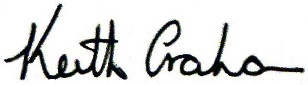 Keith Graham